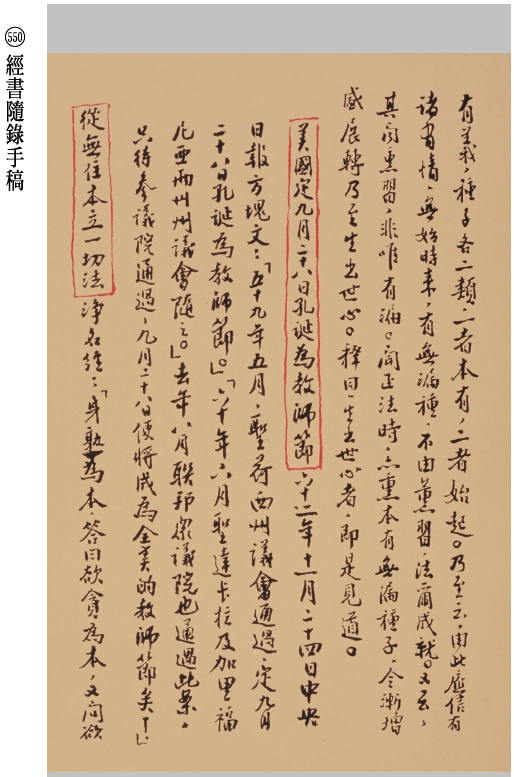 550 經書隨錄手稿
有義，種子各二類，一者本有，二者始起。乃至云，由此應信有
諸有情，無始時來，有無漏種，不由熏習，法爾成就。又云，
其聞熏習，非唯有漏。聞正法時，亦熏本有無漏種子，令漸增
盛，展轉乃至生出世心。釋曰，生出世心者，即是見道。
美國定九月二十八日孔誕為教師節 六十二年十一月二十四日中央
日報方塊文：「五十九年五月，聖荷西州議會通過，定九月
二十八日孔誕為教師節。」「六十年六月聖達卡拉及加里福
尼亞兩州州議會隨之。」去年八月聯邦眾議院也通過此案，
只待參議院通過，九月二十八日便將成為全美的教師節矣！」
從無住本立一切法 淨名經：「身孰為本，答曰欲貪為本，又問欲